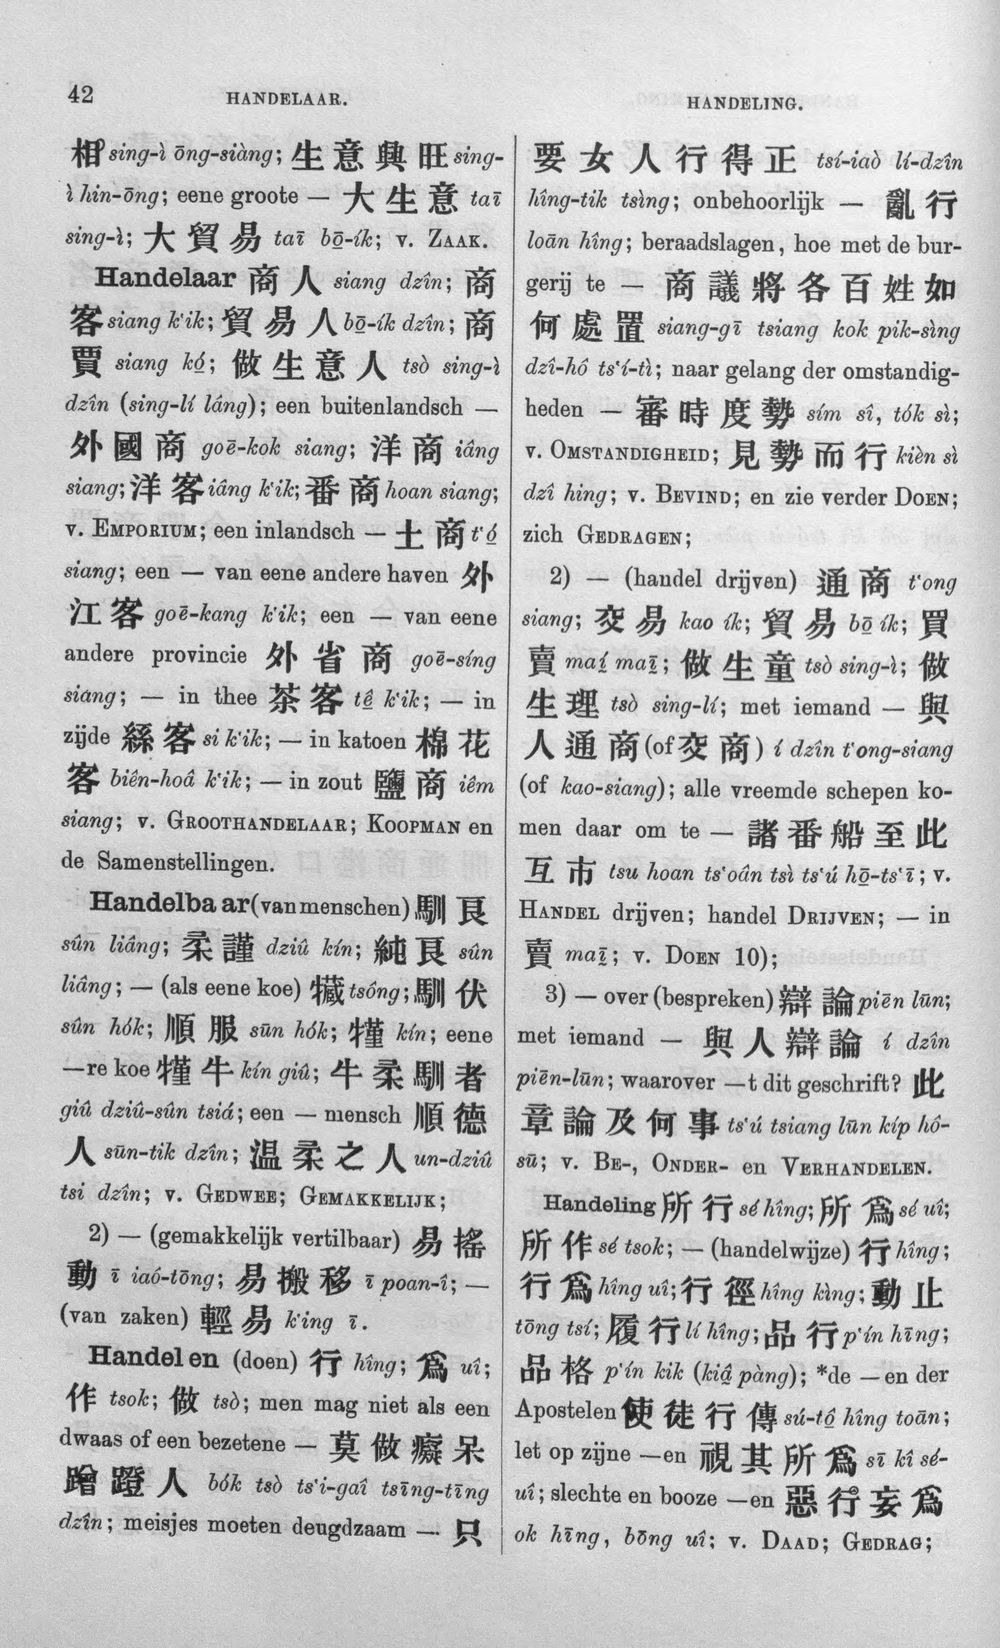 42
HANDELAAR.
HANDELING.
相 sing-ì ōng-siàng; 生意興旺 sing-
ì hin-ōng; eene groote — 大生意 taī
sing-ì; 大貿易 taī bō-ík; v. ZAAK.
Handelaar 商人 siang dzîn; 商
客 siang k‘ik; 貿易人 bō-ík dzîn; 商
賈 siang kó; 做生意人 tsò sing-ì
dzîn (sing-lí lâng); een buitenlandsch —
外國商 goē-kok siang; 洋商 iâng
siang; 洋客 iâng k‘ik; 番商 hoan siang;
v. EMPORIUM; een inlandsch — 土商 t‘ó
siang; een — van eene andere haven 外
江客 goē-kang k‘ik; een — van eene
andere provincie 外省商 goē-síng
siang; — in thee 茶客 tê k‘ik; — in
zijde 絲客 si k‘ik; — in katoen 棉花
客 biên-hoâ k‘ik; — in zout 鹽商 iêm
siang; v. GROOTHANDELAAR; KOOPMAN en
de Samenstellingen.
Handelbaar (van menschen) 馴良
sûn liâng; 柔謹 dziû kín; 純良 sûn
liâng; — (als eene koe) 犧 tsóng; 馴伏
sûn hók; 順服 sūn hók; 㹌 kín; eene
—re koe 㹌牛 kín giû; 牛柔馴者
giû dziû-sûn tsiá; een — mensch 順德
人 sūn-tik dzîn; 温柔之人 un-dziû
tsi dzîn; v. GEDWEE; GEMAKKELIJK;
2) — (gemakkelijk vertilbaar) 易搖
動 ī iaó-tōng; 易搬移 ī poan-î; —
(van zaken) 輕易 k‘ing ī.
Handelen (doen) 行 hîng; 爲 uî;
作 tsok; 做 tsò; men mag niet als een
dwaas of een bezetene — 莫做癡呆
人 bók tsò ts‘i-gaî tsīng-tīng
dzîn; meisjes moeten deugdzaam — 只
要女人行得正 tsí-iaò lí-dzîn
hîng-tik tsìng; onbehoorlijk — 亂行
loān hîng; beraadslagen, hoe met de bur-
gerij te — 商議將各百姓如
何處置 siang-gī tsiang kok pik-sìng
dzî-hô ts‘í-tì; naar gelang der omstandig-
heden — 審時度勢 sím sî, tók sì;
v. OMSTANDIGHEID; 見勢而行 kièn sì
dzî hing; v. BEVIND; en zie verder DOEN;
zich GEDRAGEN;
2) — (handel drijven) 通商 t‘ong
siang; 交易 kao ík; 貿易 bō ík; 買
賣 maí maī; 做生意 tsò sing-ì; 做
生理 tsò sing-lí; met iemand — 與
人通商 (of 交商) í dzîn t‘ong-siang
(of kao-siang); alle vreemde schepen ko-
men daar om te — 諸番船至此
互市 tsu hoan ts‘oân tsì ts‘ú hō-ts‘ī; v.
HANDEL drijven; handel DRIJVEN; — in
賣 maī; v. DOEN 10);
3) — over (bespreken) 辯論 piēn lūn;
met iemand — 與人辯論 í dzîn
piēn-lūn; waarover —t dit geschrift? 此
章論及何事 ts‘ú tsiang lūn kíp hô-
sū; v. BE-, ONDER- en VERHANDELEN.
Handeling 所行 sé hîng; 所爲 sé uî;
所作 sé tsok; — (handelwijze) 行 hîng;
行爲 hîng uî; 行徑 hîng kìng; 動止
tōng tsí; 履行 lí hîng; 品行 p‘ín hīng;
品格 p‘ín kik (kiâ pàng); *de —en der
Apostelen 使徒行傳 sú-tô hîng toān;
let op zijne —en 視其所爲 sī kî sé-
uî; slechte en booze —en 惡行妄爲
ok hīng, bōng uî; v. DAAD; GEDRAG;